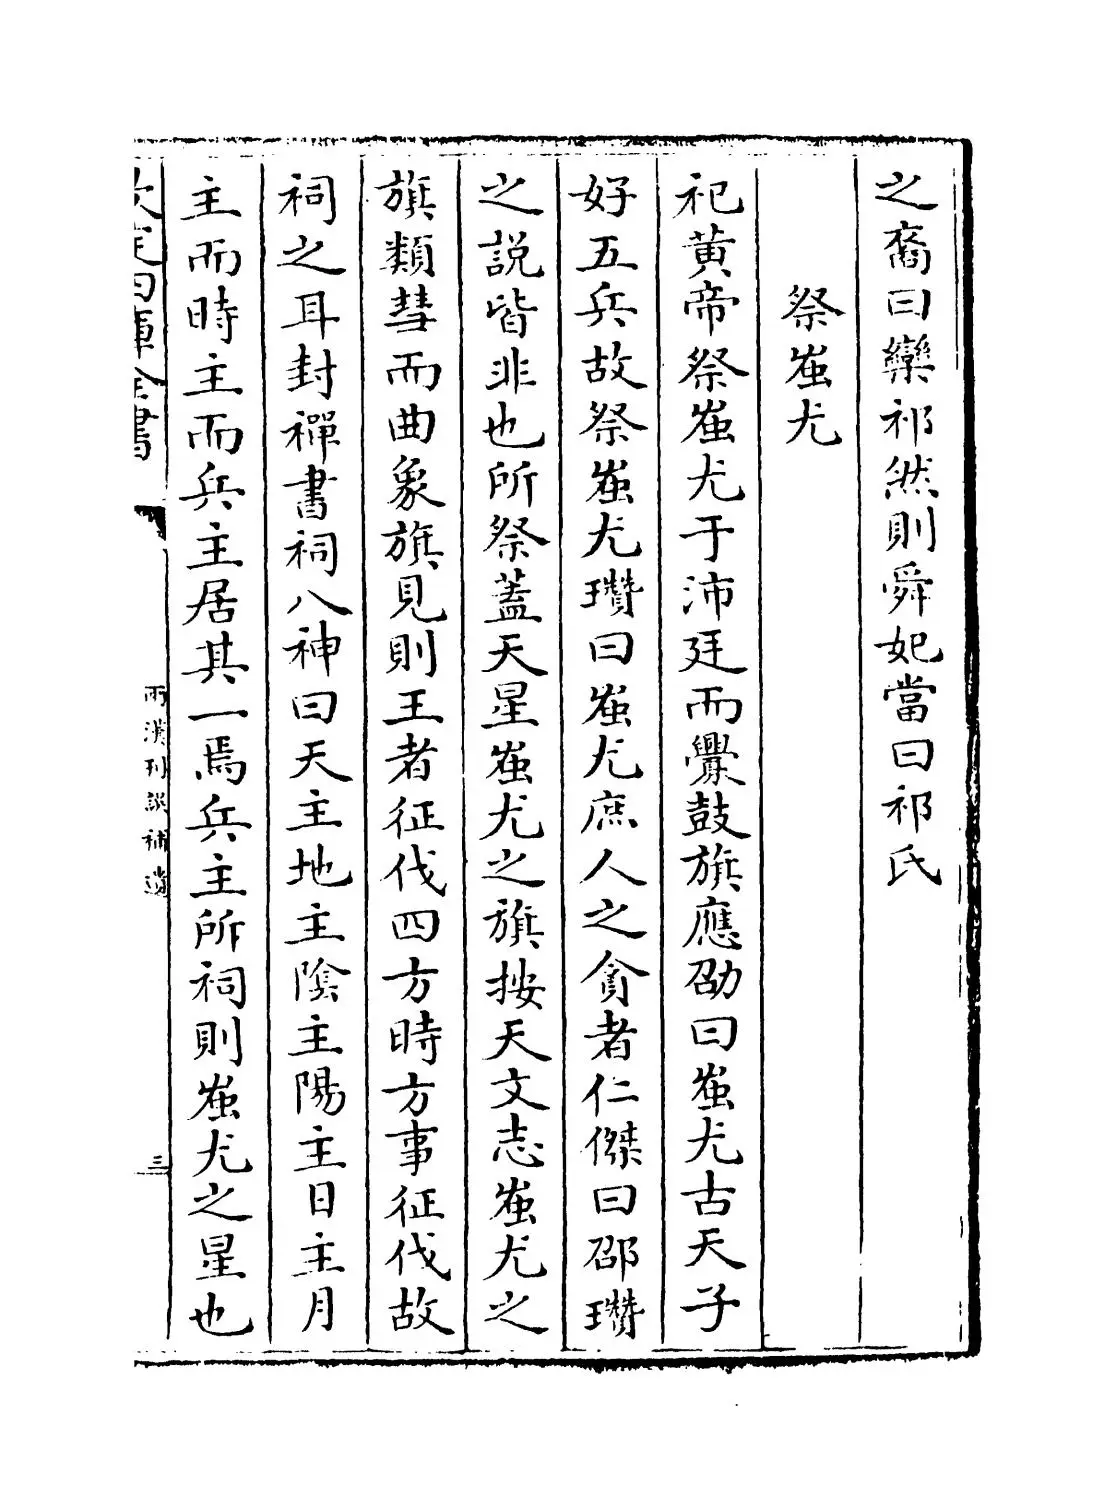 之裔曰欒祁然則舜妃當曰祁氏
祭蚩尤
祀黃帝祭蚩尤于沛廷而釁鼓旗應劭曰蚩尤古天子
好五兵故祭蚩尤瓚曰蚩尤庶人之貪者仁傑曰邵瓚
之說皆非也所祭蓋天星蚩尤之旗按天文志蚩尤之
旗類彗而曲象旗見則王者征伐四方時方事征伐故
祠之耳封禪書祠八神曰天主地主陰主陽主日主月
主而時主而兵主居其一焉兵主所祠則蚩尤之星也
欽定四庫全書
兩漢刊誤補遺
三